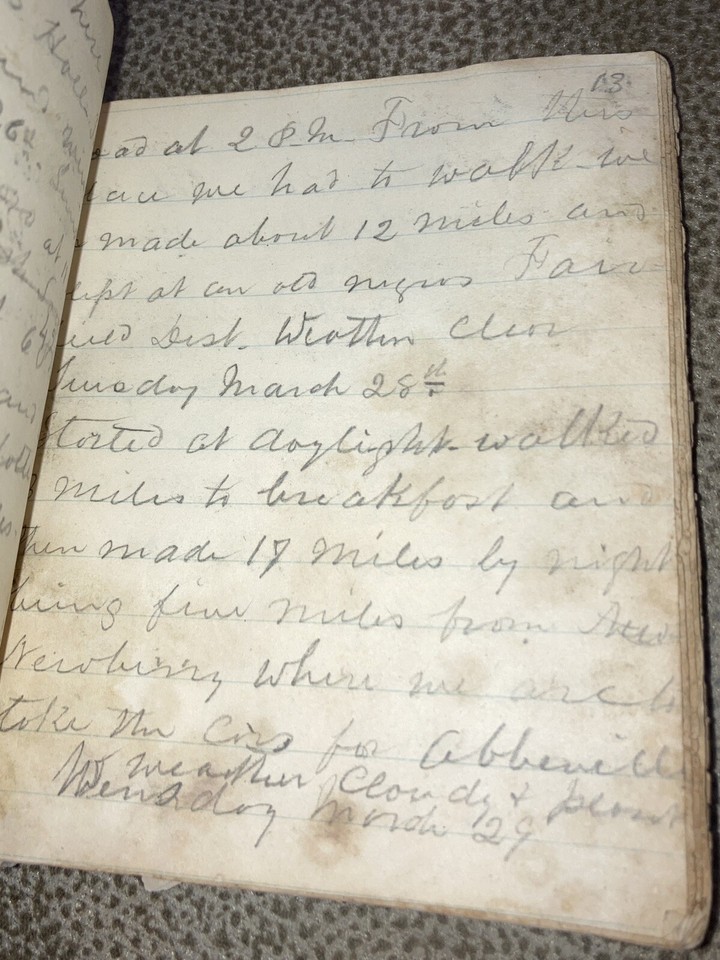 13
at 2 P.M. From this
we had to walk we
made about 12 miles and
at an old negros Fair-
Dist. Weather Clear
Tuesday March 28th
Started at daylight walked
miles to breakfast and
then made 17 miles by night
being five miles from
Newberry where we are to
take the Cars for Abbeville
weather Cloudy &
Wensday March 29